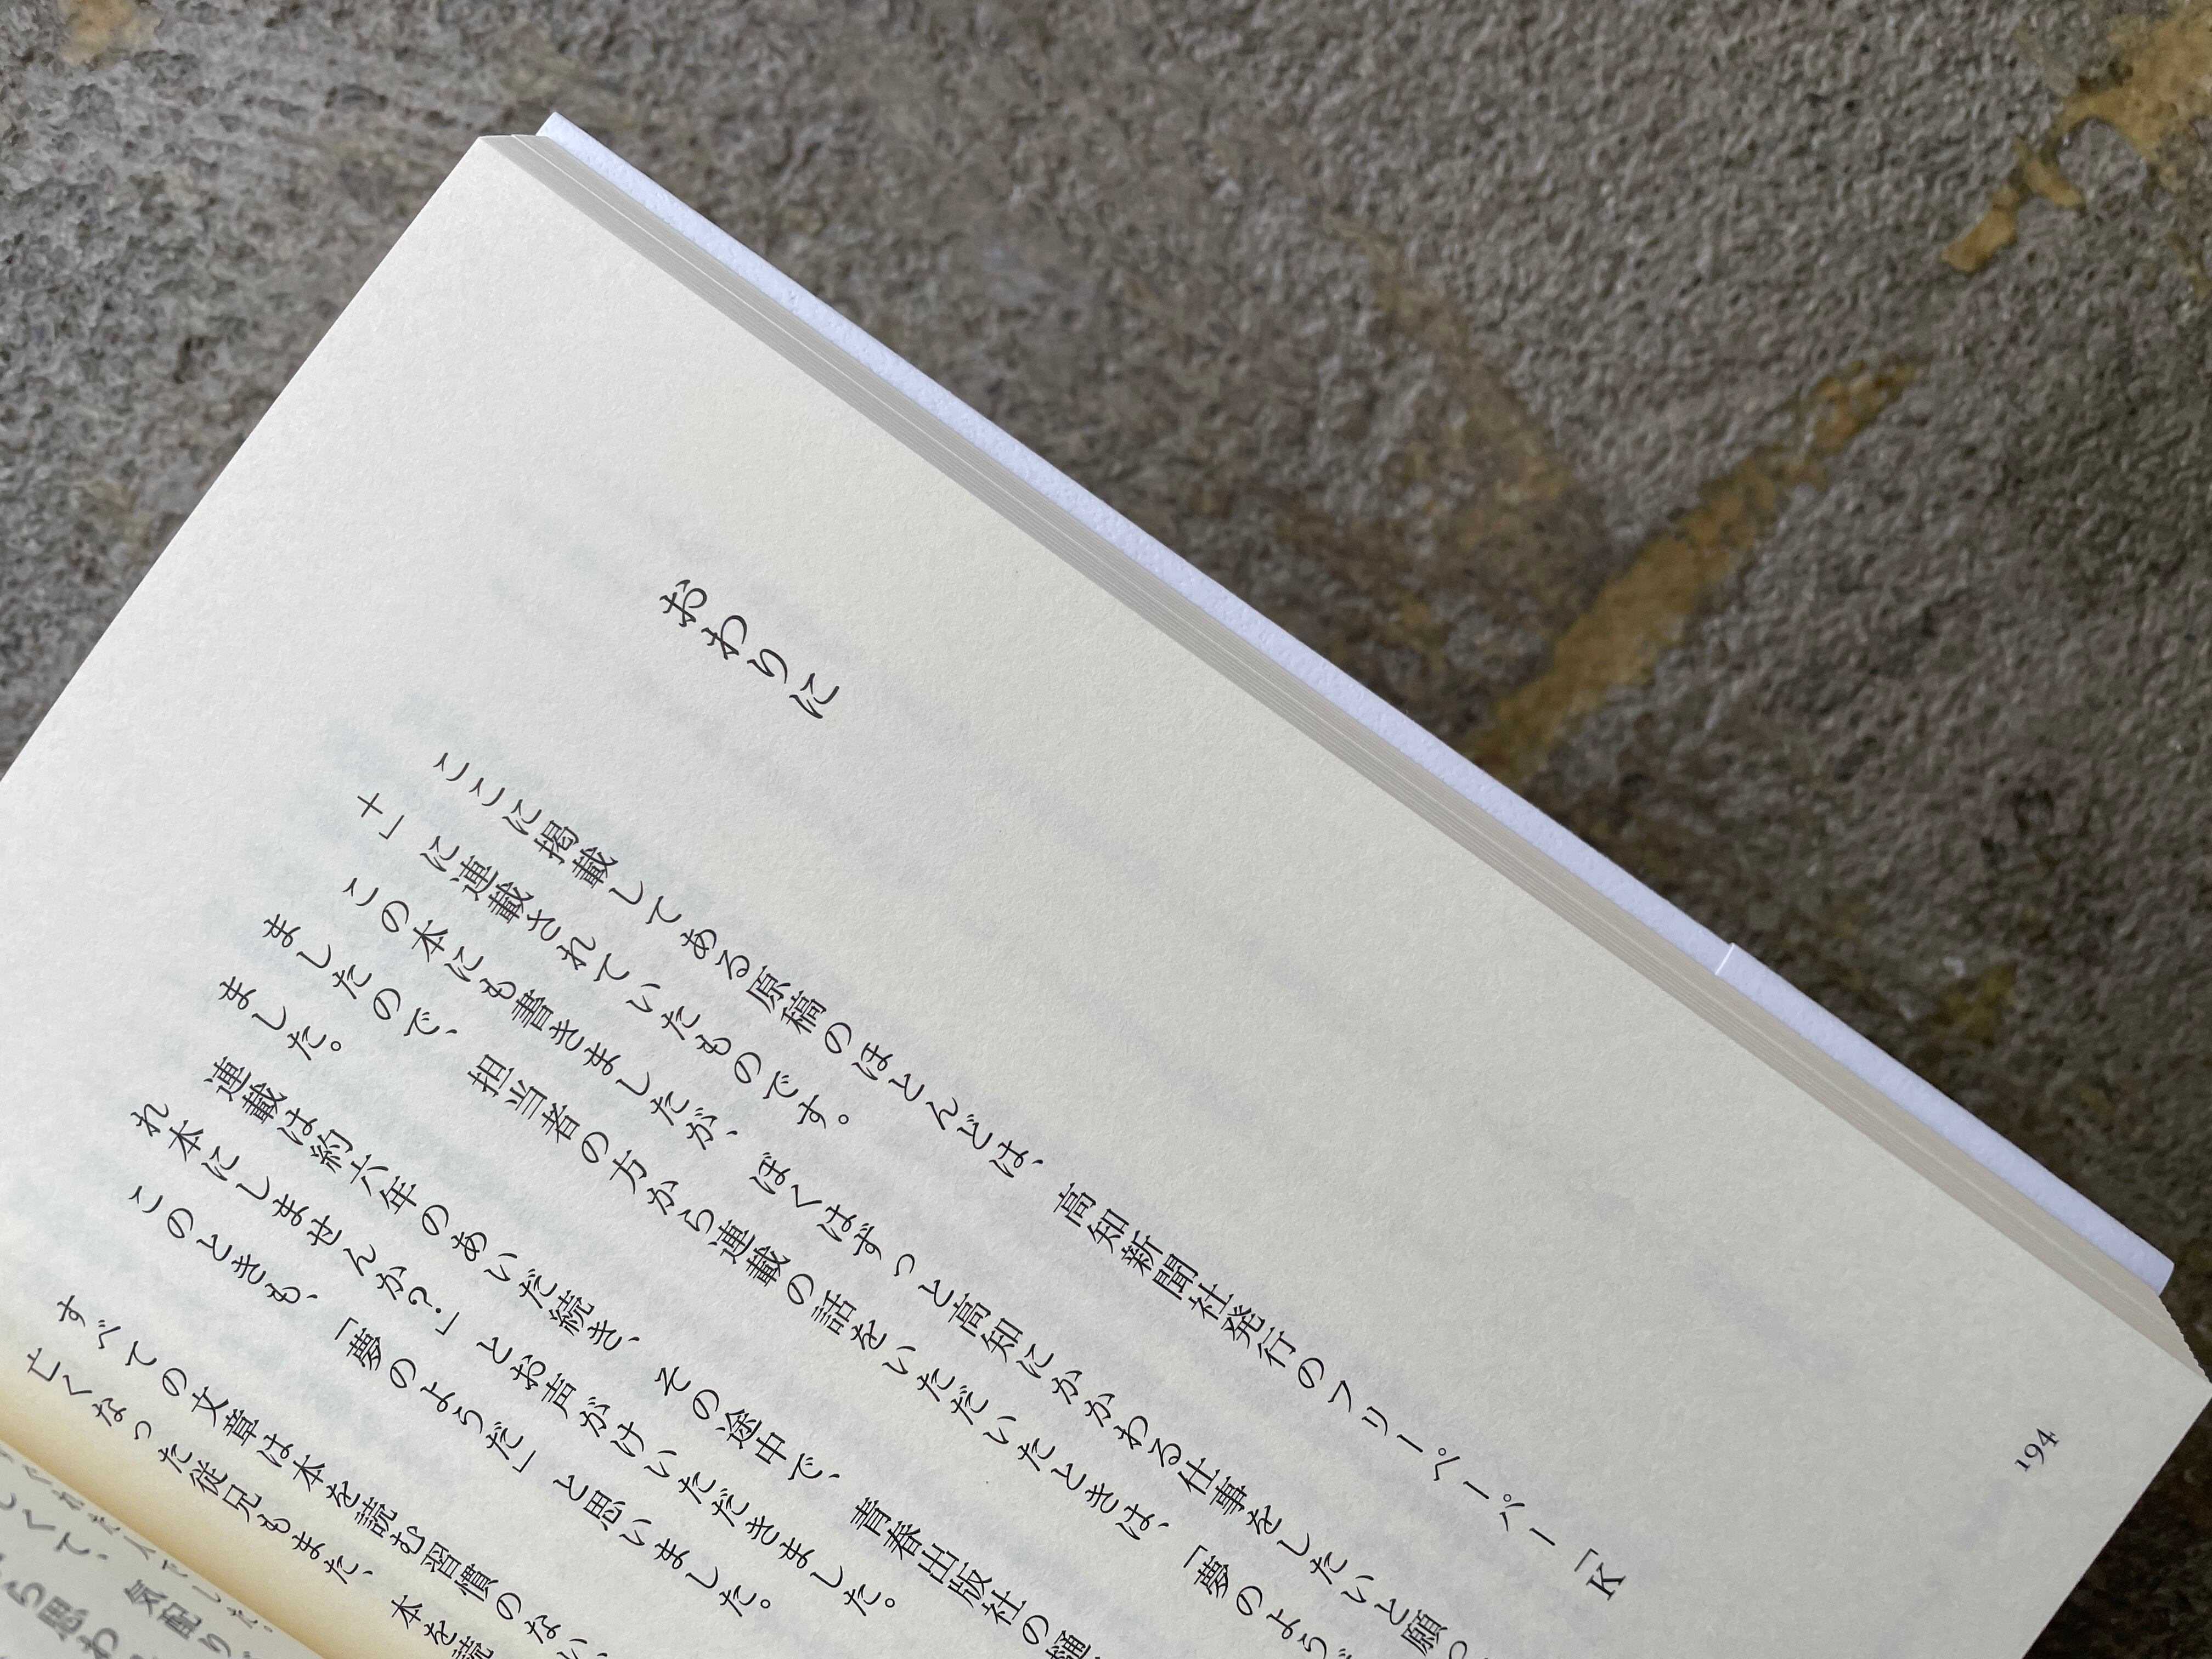 おわりに
ここに掲載してある原稿のほとんどは、高知新聞社発行のフリーペーパー「K
+」に連載されていたものです。
この本にも書きましたが、ぼくはずっと高知にかかわる仕事をしたいと願っ
ましたので、担当者の方から連載の話をいただいたときは、「夢のよう
ました。
連載は約六年のあいだ続き、その途中で、青春出版社の樋
れ本にしませんか?」とお声がけいただきました。
このときも、「夢のようだ」と思いました。
すべての文章は本を読む習慣のない
亡くなった従兄もまた、本を読
くて、気配り
ら思わ
194